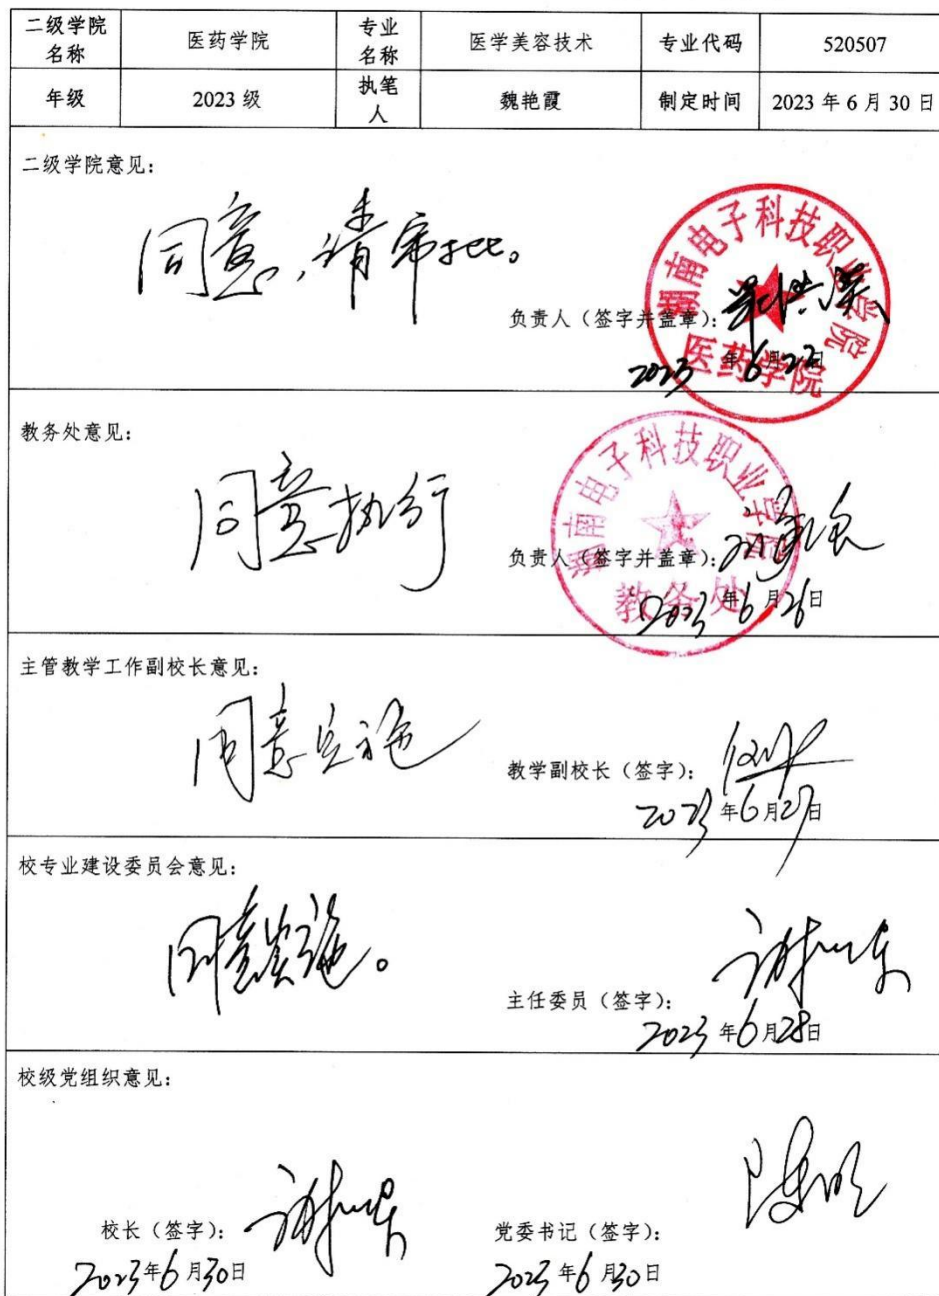 二级学院名称 医药学院 专业名称 医学美容技术 专业代码 520507
年级 2023 级 执笔人 魏艳霞 制定时间 2023 年 6 月 30 日
二级学院意见：
同意，请审批。
湖南电子科技职业学院
医药学院
负责人（签字并盖章）：
2023 年 6 月 22 日
教务处意见：
同意执行
湖南电子科技职业学院
教务处
负责人（签字并盖章）：
2023 年 6 月 26 日
主管教学工作副校长意见：
同意实施
教学副校长（签字）：
2023 年 6 月 27 日
校专业建设委员会意见：
同意实施。
主任委员（签字）：
2023 年 6 月 28 日
校级党组织意见：
校长（签字）： 党委书记（签字）：
2023 年 6 月 30 日 2023 年 6 月 30 日